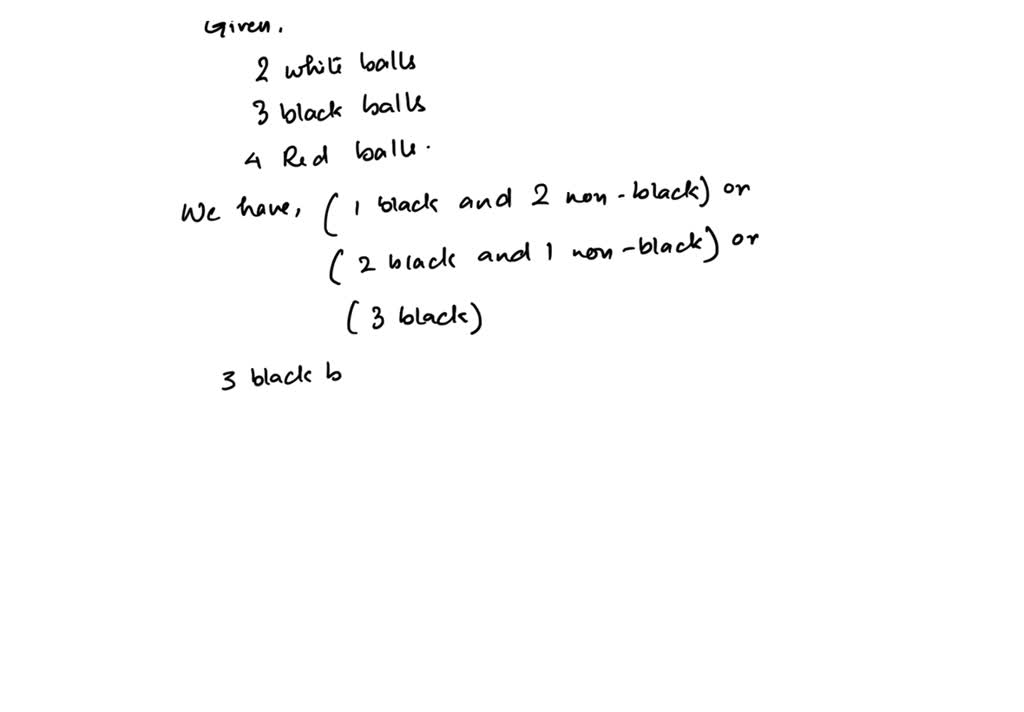 Given,
2 white balls
3 black balls
4 Red balls.
We have, (1 black and 2 non-black) or
(2 black and 1 non-black) or
(3 black)
3 black b